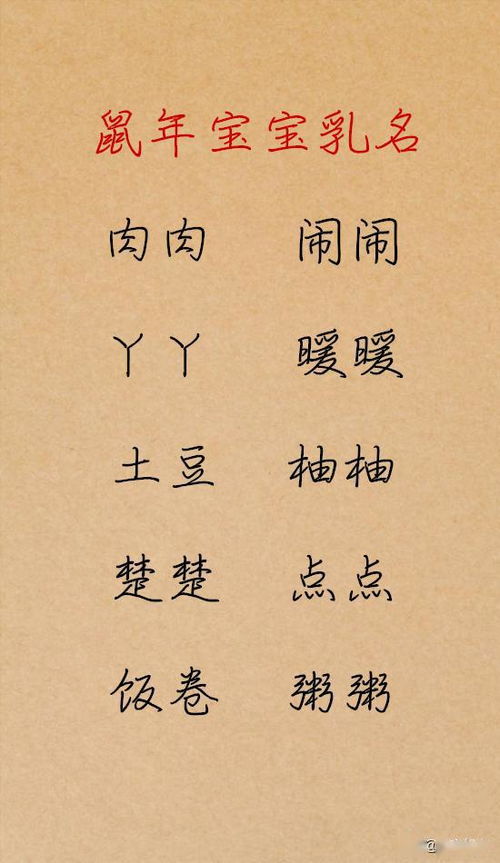 鼠年宝宝乳名
肉肉 闹闹
丫丫 暖暖
土豆 柚柚
楚楚 点点
饭卷 粥粥